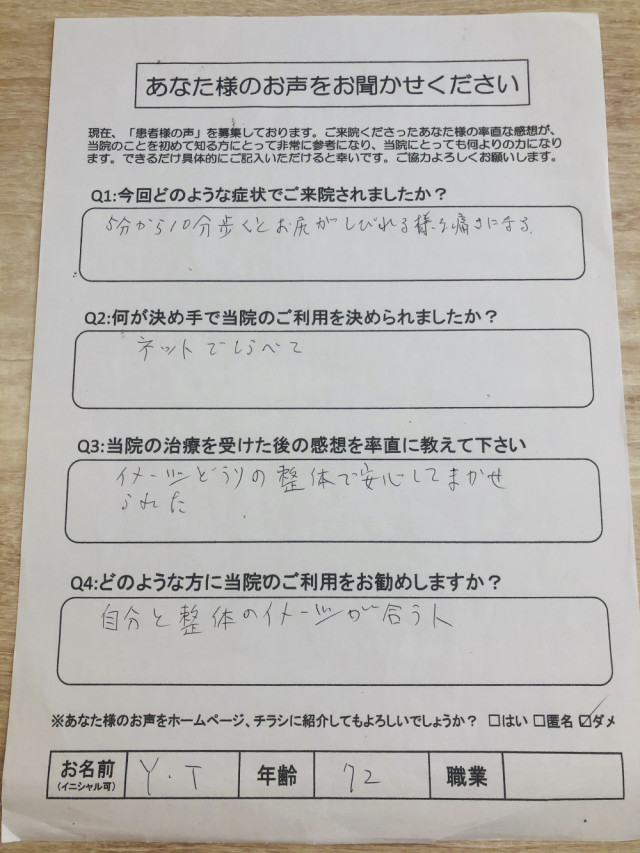 あなた様のお声をお聞かせください
現在、「患者様の声」を募集しております。ご来院くださったあなた様の率直な感想が、
当院のことを初めて知る方にとって非常に参考になり、当院にとっても何よりの力になり
ます。できるだけ具体的にご記入いただけると幸いです。ご協力よろしくお願いします。
Q1:今回どのような症状でご来院されましたか？
5分から10分歩くとお尻がしびれる様な痛さになる
Q2:何が決め手で当院のご利用を決められましたか？
ネットでしらべて
Q3:当院の治療を受けた後の感想を率直に教えて下さい
イメージどうりの整体で安心してまかせ
られた
Q4:どのような方に当院のご利用をお勧めしますか？
自分と整体のイメージが合う人
※あなた様のお声をホームページ、チラシに紹介してもよろしいでしょうか？ □はい □匿名 ☑ダメ
お名前 Y.T 年齢 72 職業
(イニシャル可)